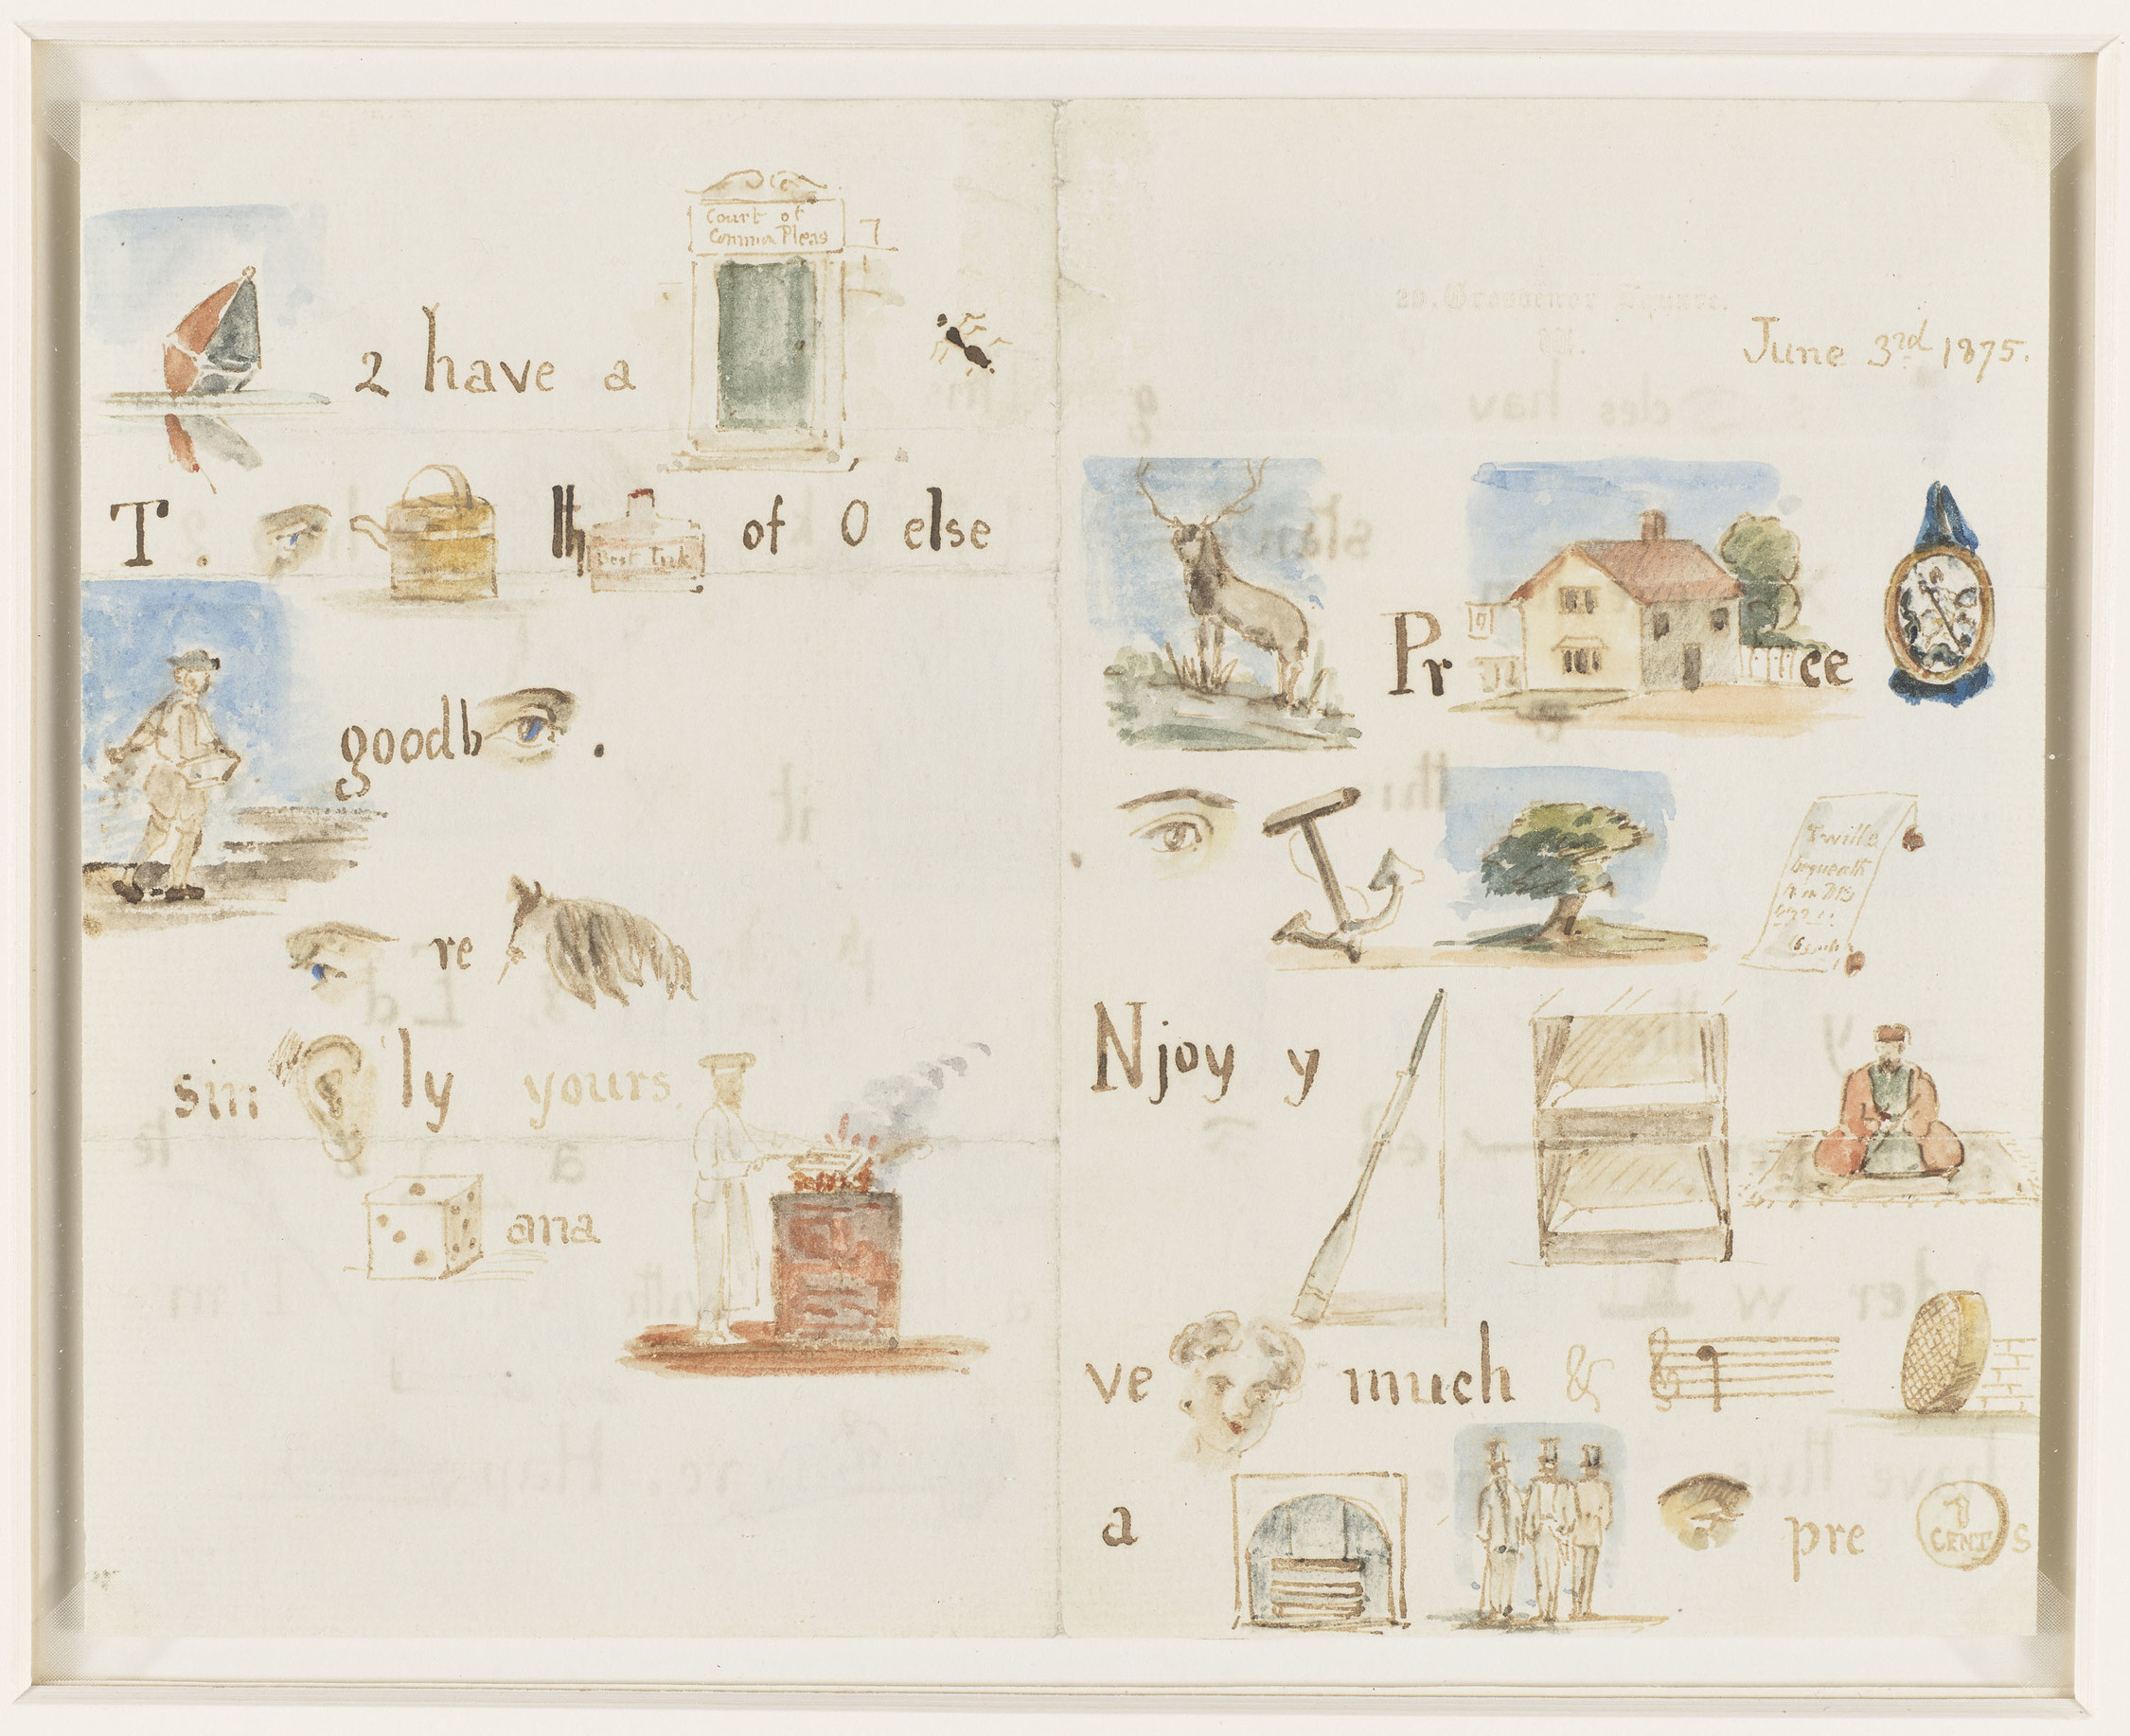 29. Grosvenor Square.
W.
June 3rd 1875.
Pr ce
I wille
bequeath
Njoy y
ve much &
a pre 1 CENT s
Court of
Common Pleas
2 have a
T. th Best Ink of O else
goodb .
re
sin ly yours
ana